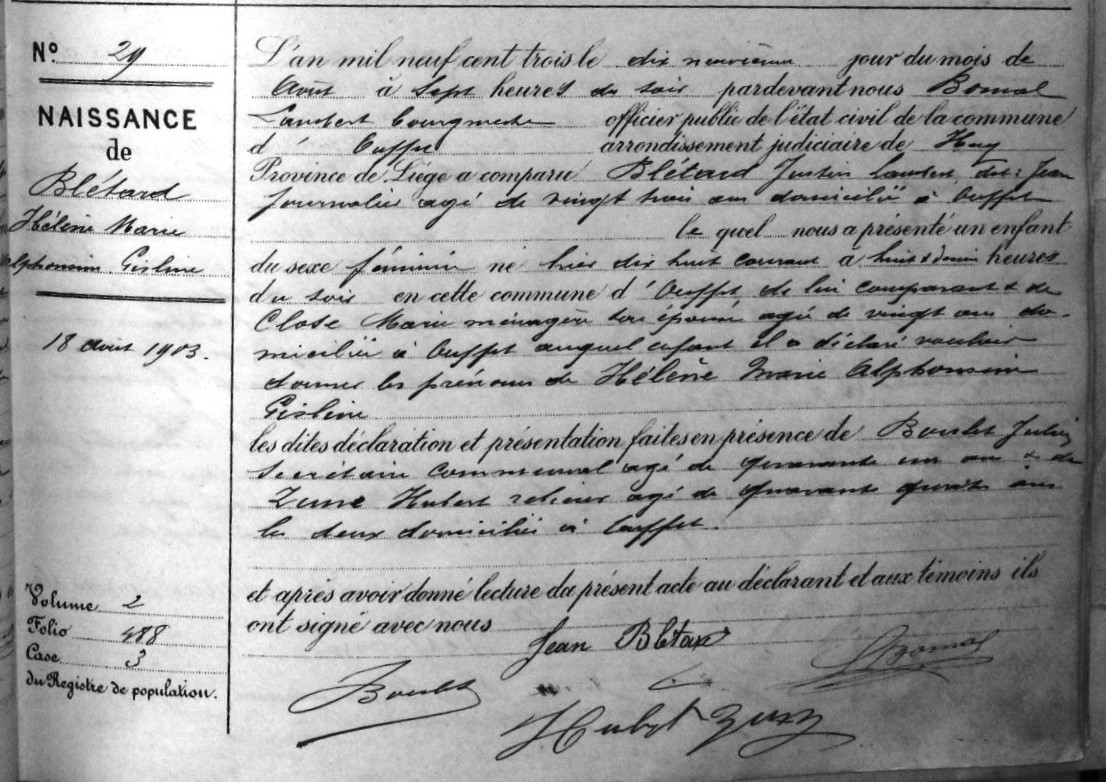 N° 29
NAISSANCE
de
Blétard
Hélène Marie
Alphonsine Gisline
18 août 1903.
Volume 2
Folio 488
Case 3
du Registre de population.
L'an mil neuf cent trois le dix neuvième jour du mois de
Août à sept heures du soir pardevant nous Bomal
Lambert bourgmestre officier public de l'état civil de la commune
d' Ouffet arrondissement judiciaire de Huy
Province de Liège a comparu Blétard Justin Lambert dit: Jean
journalier agé de vingt trois ans domicilié à Ouffet
le quel nous a présenté un enfant
du sexe féminin né hier dix huit courant à huit & demie heures
du soir en cette commune d' Ouffet de lui comparant & de
Close Marie ménagère son épouse agée de vingt ans do-
miciliée à Ouffet auquel enfant il a déclaré vouloir
donner les prénoms de Hélène Marie Alphonsine
Gisline
les dites déclaration et présentation faites en présence de Boulet Julien
secrétaire communal agé de quarante un ans & de
Zune Hubert relieur agé de quarante quatre ans
les deux domiciliés à Ouffet.
et après avoir donné lecture du présent acte au déclarant et aux témoins ils
ont signé avec nous Jean Blétard
Boulet
Bomal
Hubert